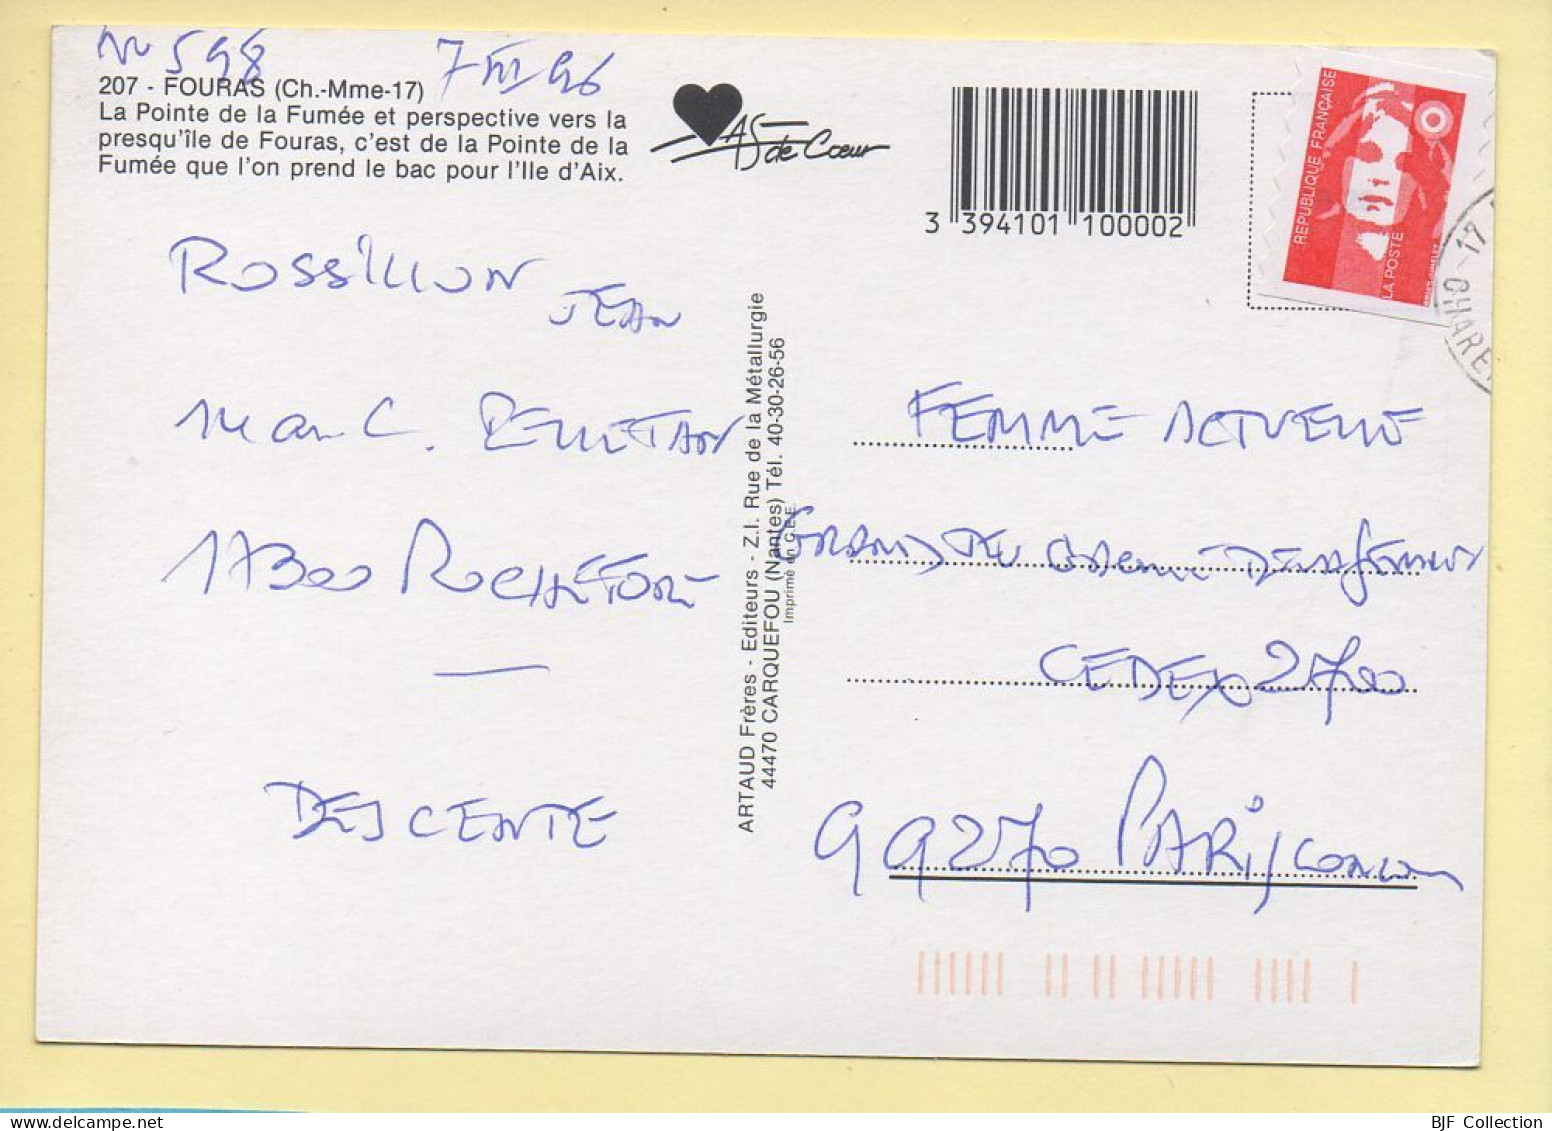 No 598 7 VII 96
207 - FOURAS (Ch.-Mme-17)
La Pointe de la Fumée et perspective vers la
presqu'île de Fouras, c'est de la Pointe de la
Fumée que l'on prend le bac pour l'Ile d'Aix.
AS de Cœur
3 394101 100002
REPUBLIQUE FRANÇAISE
LA POSTE
17
CHAREN
ROSSILLON
JEAN
C. PELLETAN
17300 ROCHEFORT
DESCENTE
ARTAUD Frères - Editeurs - Z.I. Rue de la Métallurgie
44470 CARQUEFOU (Nantes) Tél. 40-30-26-56
Imprimé en C.E.E.
FEMME ACTUELLE
GRAND JEU
CEDEX 2700
99270 PARIS CONCOURS
BJF Collection